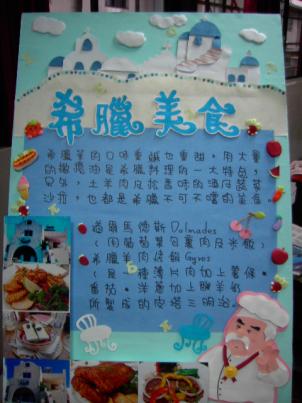 希臘美食
希臘菜的口味重鹹也重甜，用大量
的橄欖油是希臘料理的一大特色，
另外，土羊肉及
沙拉，也都是希臘不可不嚐的美食
道爾馬德斯 Dolmades
（用葡萄葉包裏肉及米飯）
希臘羊肉 Gyros
（是一種薄片肉加上薯條、
番茄、洋蔥加上酸羊奶
所製成的皮塔三明治。）